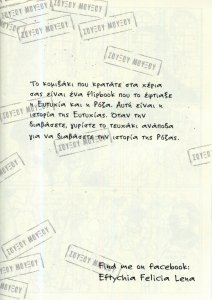 ΣΟΥΞΟΥ ΜΟΥΞΟΥ
ΣΟΥΞΟΥ ΜΟΥΞΟΥ
ΣΟΥΞΟΥ ΜΟΥΞΟΥ
Το κομιξάκι που κρατάτε στα χέρια
σας είναι ένα flipbook που το έφτιαξε
η Ευτυχία και η Ρόζα. Αυτή είναι η
ιστορία της Ευτυχίας. Όταν την
διαβάσετε, γυρίστε το τευχάκι ανάποδα
για να διαβάσετε την ιστορία της Ρόζας.
ΣΟΥΞΟΥ ΜΟΥΞΟΥ
ΣΟΥΞΟΥ ΜΟΥΞΟΥ
ΣΟΥΞΟΥ ΜΟΥΞΟΥ
ΣΟΥΞΟΥ ΜΟΥΞΟΥ
Find me on facebook:
Eftychia Felicia Lena